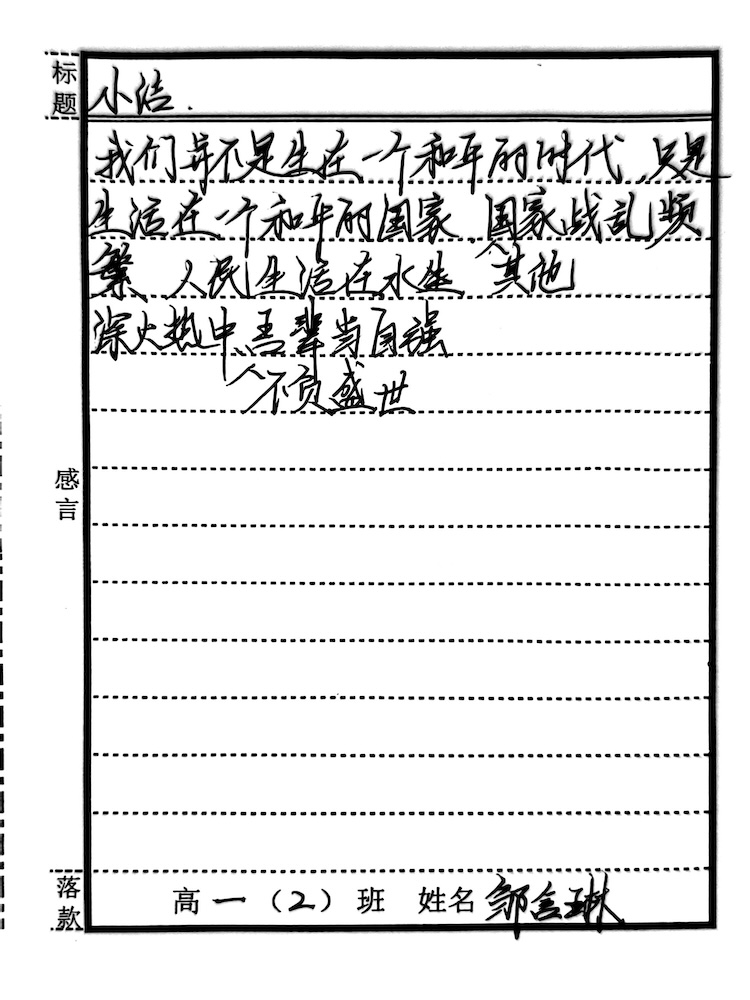 标题
小洁.
我们并不是生在一个和平的时代,只是
生活在一个和平的国家,国家战乱频
繁、人民生活在水生 ^其他
深火热中、吾辈当自强
^不负盛世
感言
落款
高一（2）班 姓名 邹言琳